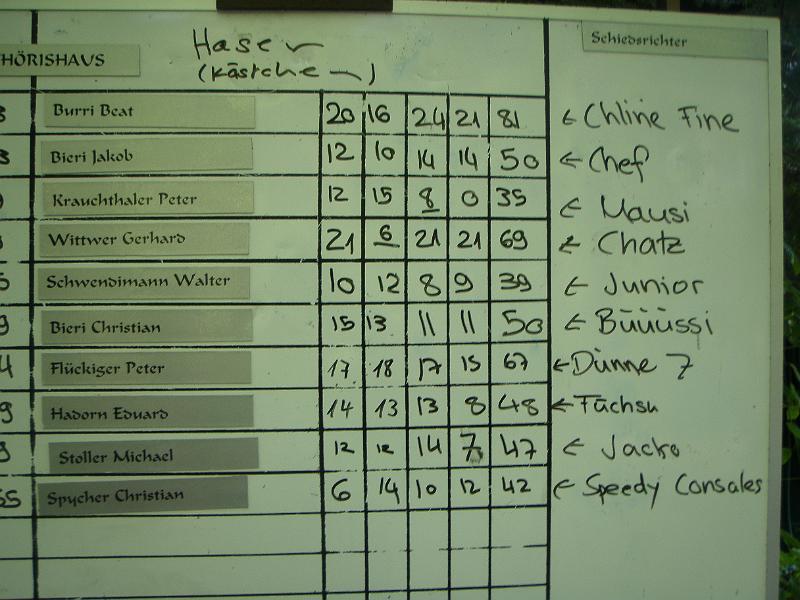 HÖRISHAUS
Hasen
(Kästchen)
Schiedsrichter
Burri Beat 20 16 24 21 81 ← Chline Fine
Bieri Jakob 12 10 14 14 50 ← Chef
Krauchthaler Peter 12 15 8 0 35 ← Mausi
Wittwer Gerhard 21 6 21 21 69 ← Chatz
Schwendimann Walter 10 12 8 9 39 ← Junior
Bieri Christian 15 13 11 11 50 ← Büüüssi
Flückiger Peter 17 18 17 15 67 ← Dünne 7
Hadorn Eduard 14 13 13 8 48 ← Füchsu
Stoller Michael 12 12 14 7 47 ← Jacko
Spycher Christian 6 14 10 12 42 ← Speedy Consales